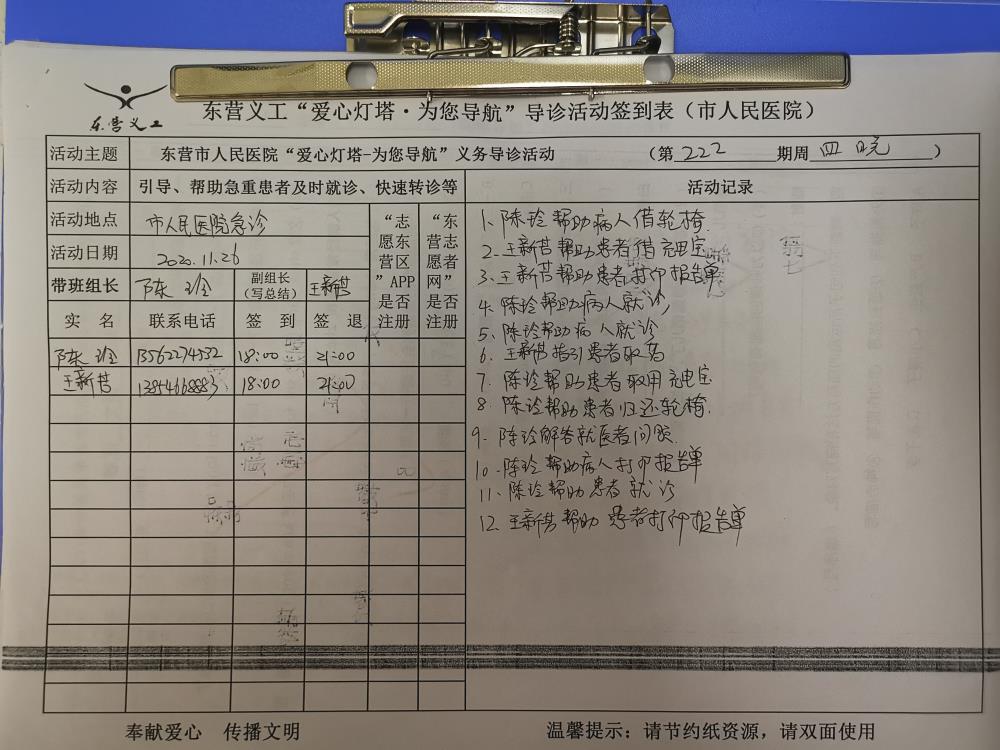 东营义工
东营义工“爱心灯塔·为您导航”导诊活动签到表（市人民医院）
活动主题 东营市人民医院“爱心灯塔-为您导航”义务导诊活动 （第 222 期周 四 晚 ）
活动内容 引导、帮助急重患者及时就诊、快速转诊等 活动记录
活动地点 市人民医院急诊
活动日期 2020.11.26
“志愿东营区”APP是否注册
“东营志愿者网”是否注册
带班组长 陈玲 副组长（写总结） 王新芸
实 名 联系电话 签 到 签 退
陈玲 13562274532 18:00 21:00
王新芸 13854668883 18:00 21:00
1. 陈玲帮助病人借轮椅.
2. 王新芸帮助患者借充电宝
3. 王新芸帮助患者打印报告单
4. 陈玲帮助病人就诊
5. 陈玲帮助病人就诊
6. 王新芸指引患者取药
7. 陈玲帮助患者取用充电宝
8. 陈玲帮助患者归还轮椅.
9. 陈玲解答就医者问题.
10. 陈玲帮助病人打印报告单
11. 陈玲帮助患者就诊
12. 王新芸帮助患者打印报告单
奉献爱心 传播文明
温馨提示：请节约纸资源，请双面使用